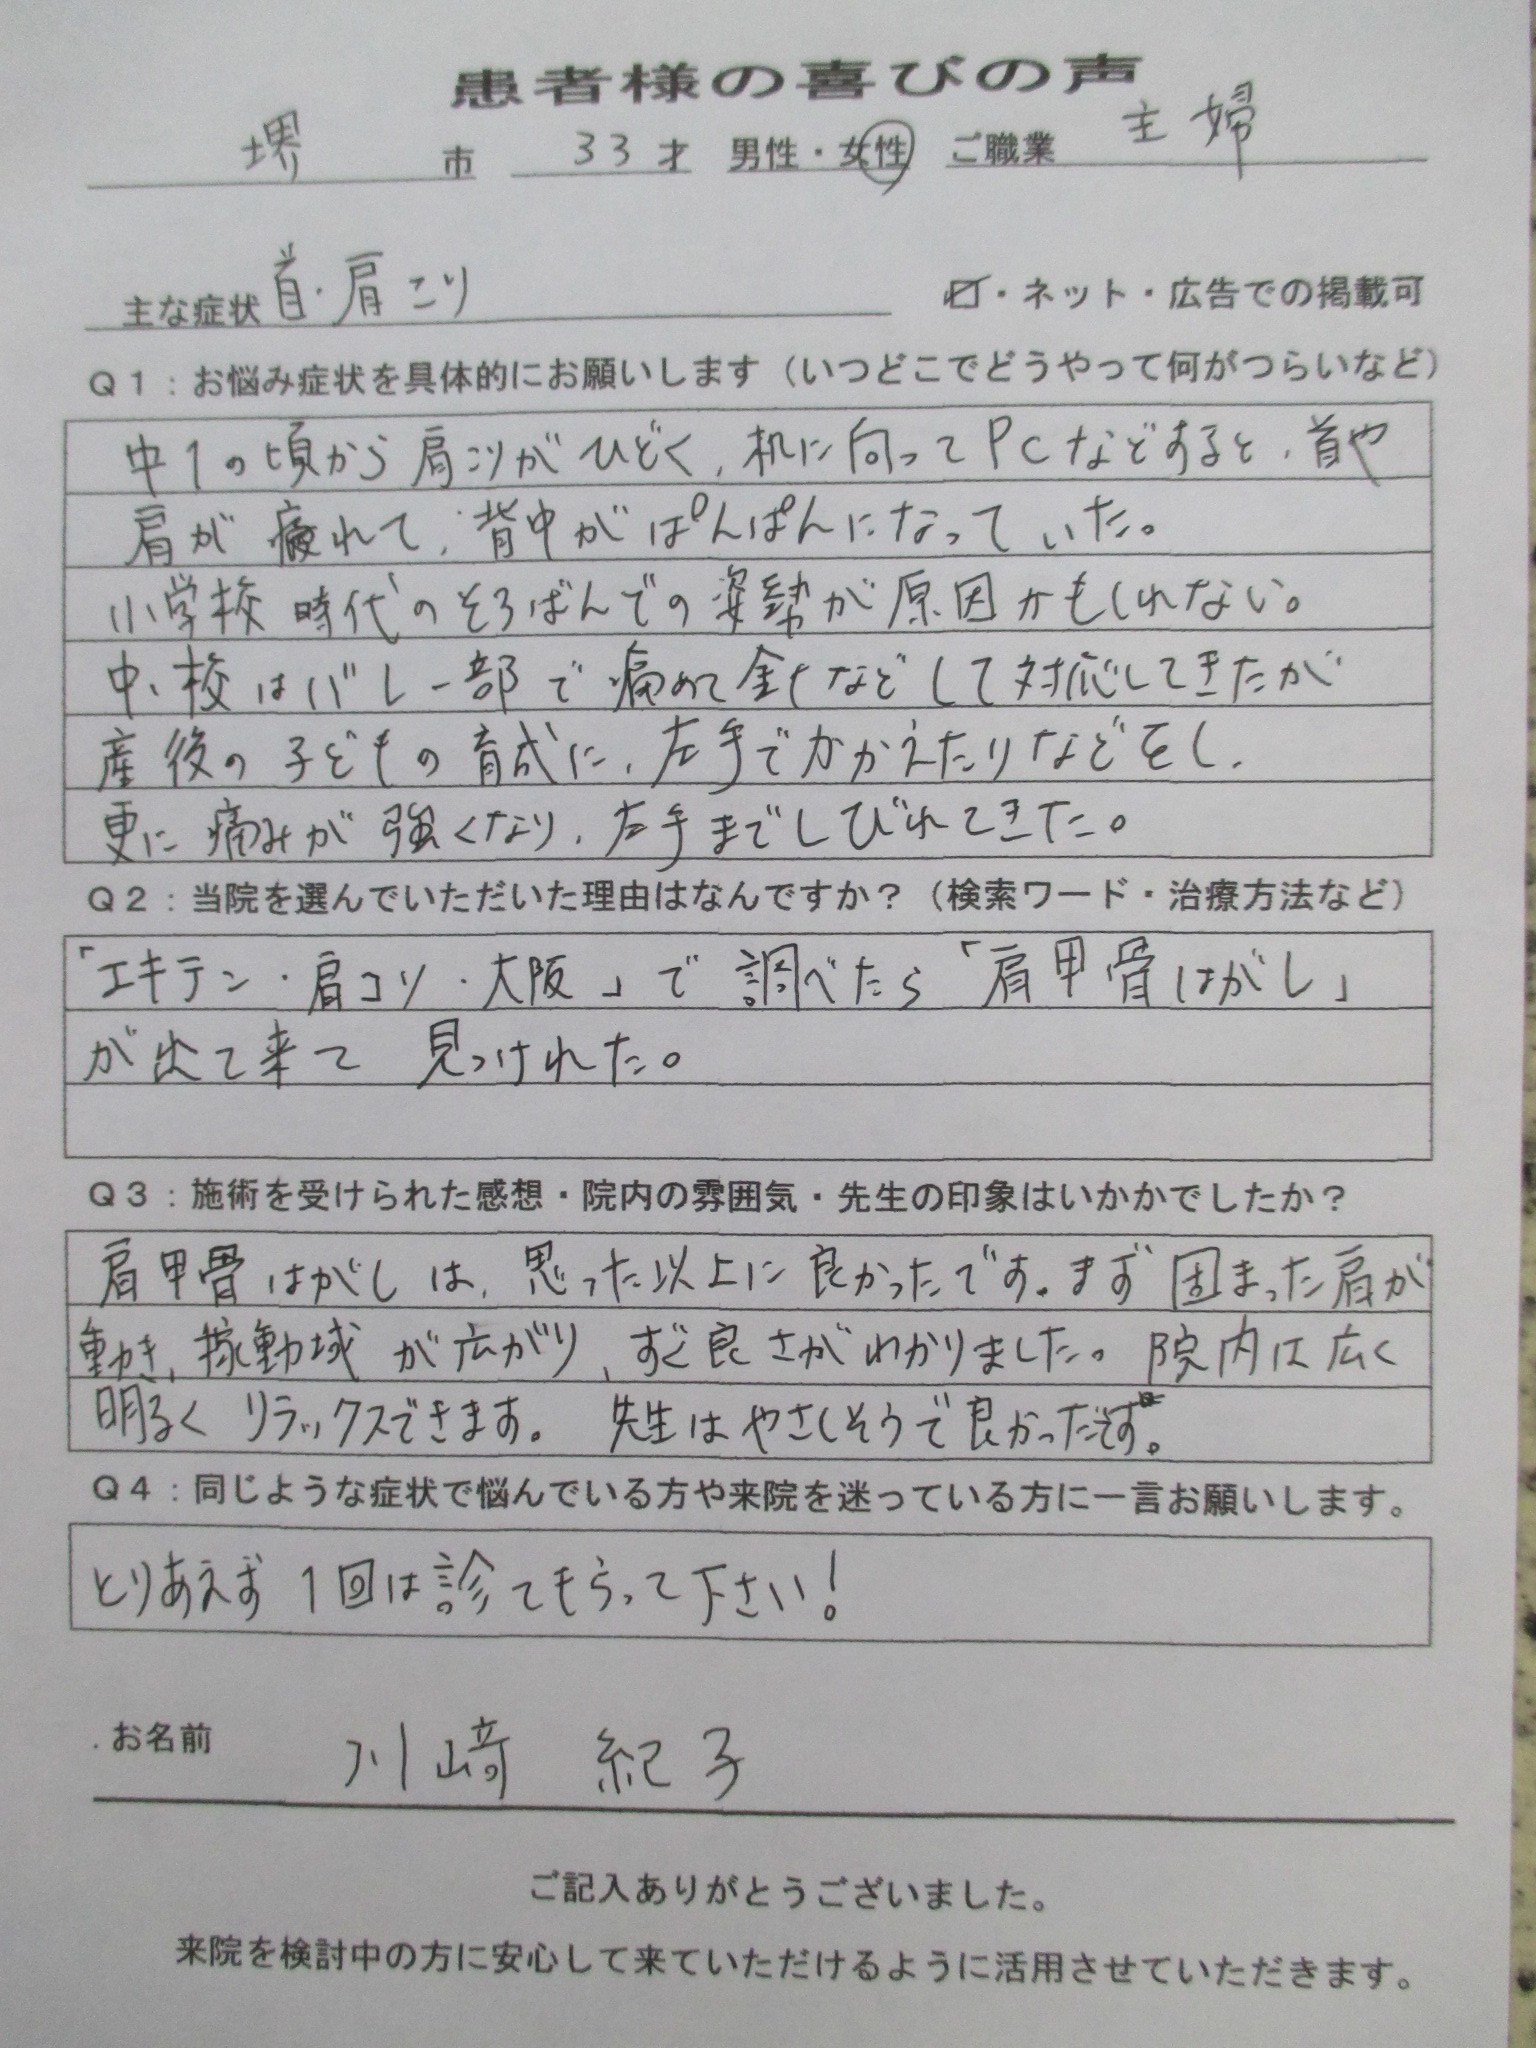 患者様の喜びの声
堺 市 33 才 男性・女性 ご職業 主婦
主な症状 首・肩こり ・ネット・広告での掲載可
Q1:お悩み症状を具体的にお願いします(いつどこでどうやって何がつらいなど)
中1の頃から肩コリがひどく、机に向ってPCなどすると、首や
肩が疲れて、背中がぱんぱんになっていた。
小学校時代のそろばんでの姿勢が原因かもしれない。
中、校はバレー部で痛めて針などして対応してきたが
産後の子どもの育成に、左手でかかえたりなどをし、
更に痛みが強くなり、左手までしびれてきた。
Q2:当院を選んでいただいた理由はなんですか?(検索ワード・治療方法など)
「エキテン・肩コリ・大阪」で調べたら「肩甲骨はがし」
が出て来て 見つけれた。
Q3:施術を受けられた感想・院内の雰囲気・先生の印象はいかかでしたか?
肩甲骨はがしは、思った以上に良かったです。まず固まった肩が
動き、稼動域が広がり、すぐ良さがわかりました。院内は広く
明るくリラックスできます。 先生はやさしそうで良かったです。
Q4:同じような症状で悩んでいる方や来院を迷っている方に一言お願いします。
とりあえず1回は診てもらって下さい!
お名前 川﨑 紀子
ご記入ありがとうございました。
来院を検討中の方に安心して来ていただけるように活用させていただきます。